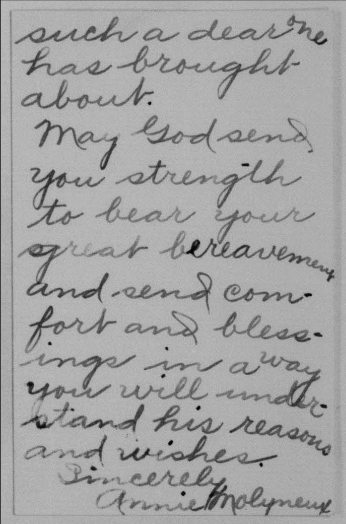 such a dear one
has brought
about.
May God send
you strength
to bear your
great bereavement
and send com-
fort and bless-
ings in a way
you will under-
stand his reasons
and wishes.
Sincerely
Annie Molyneux